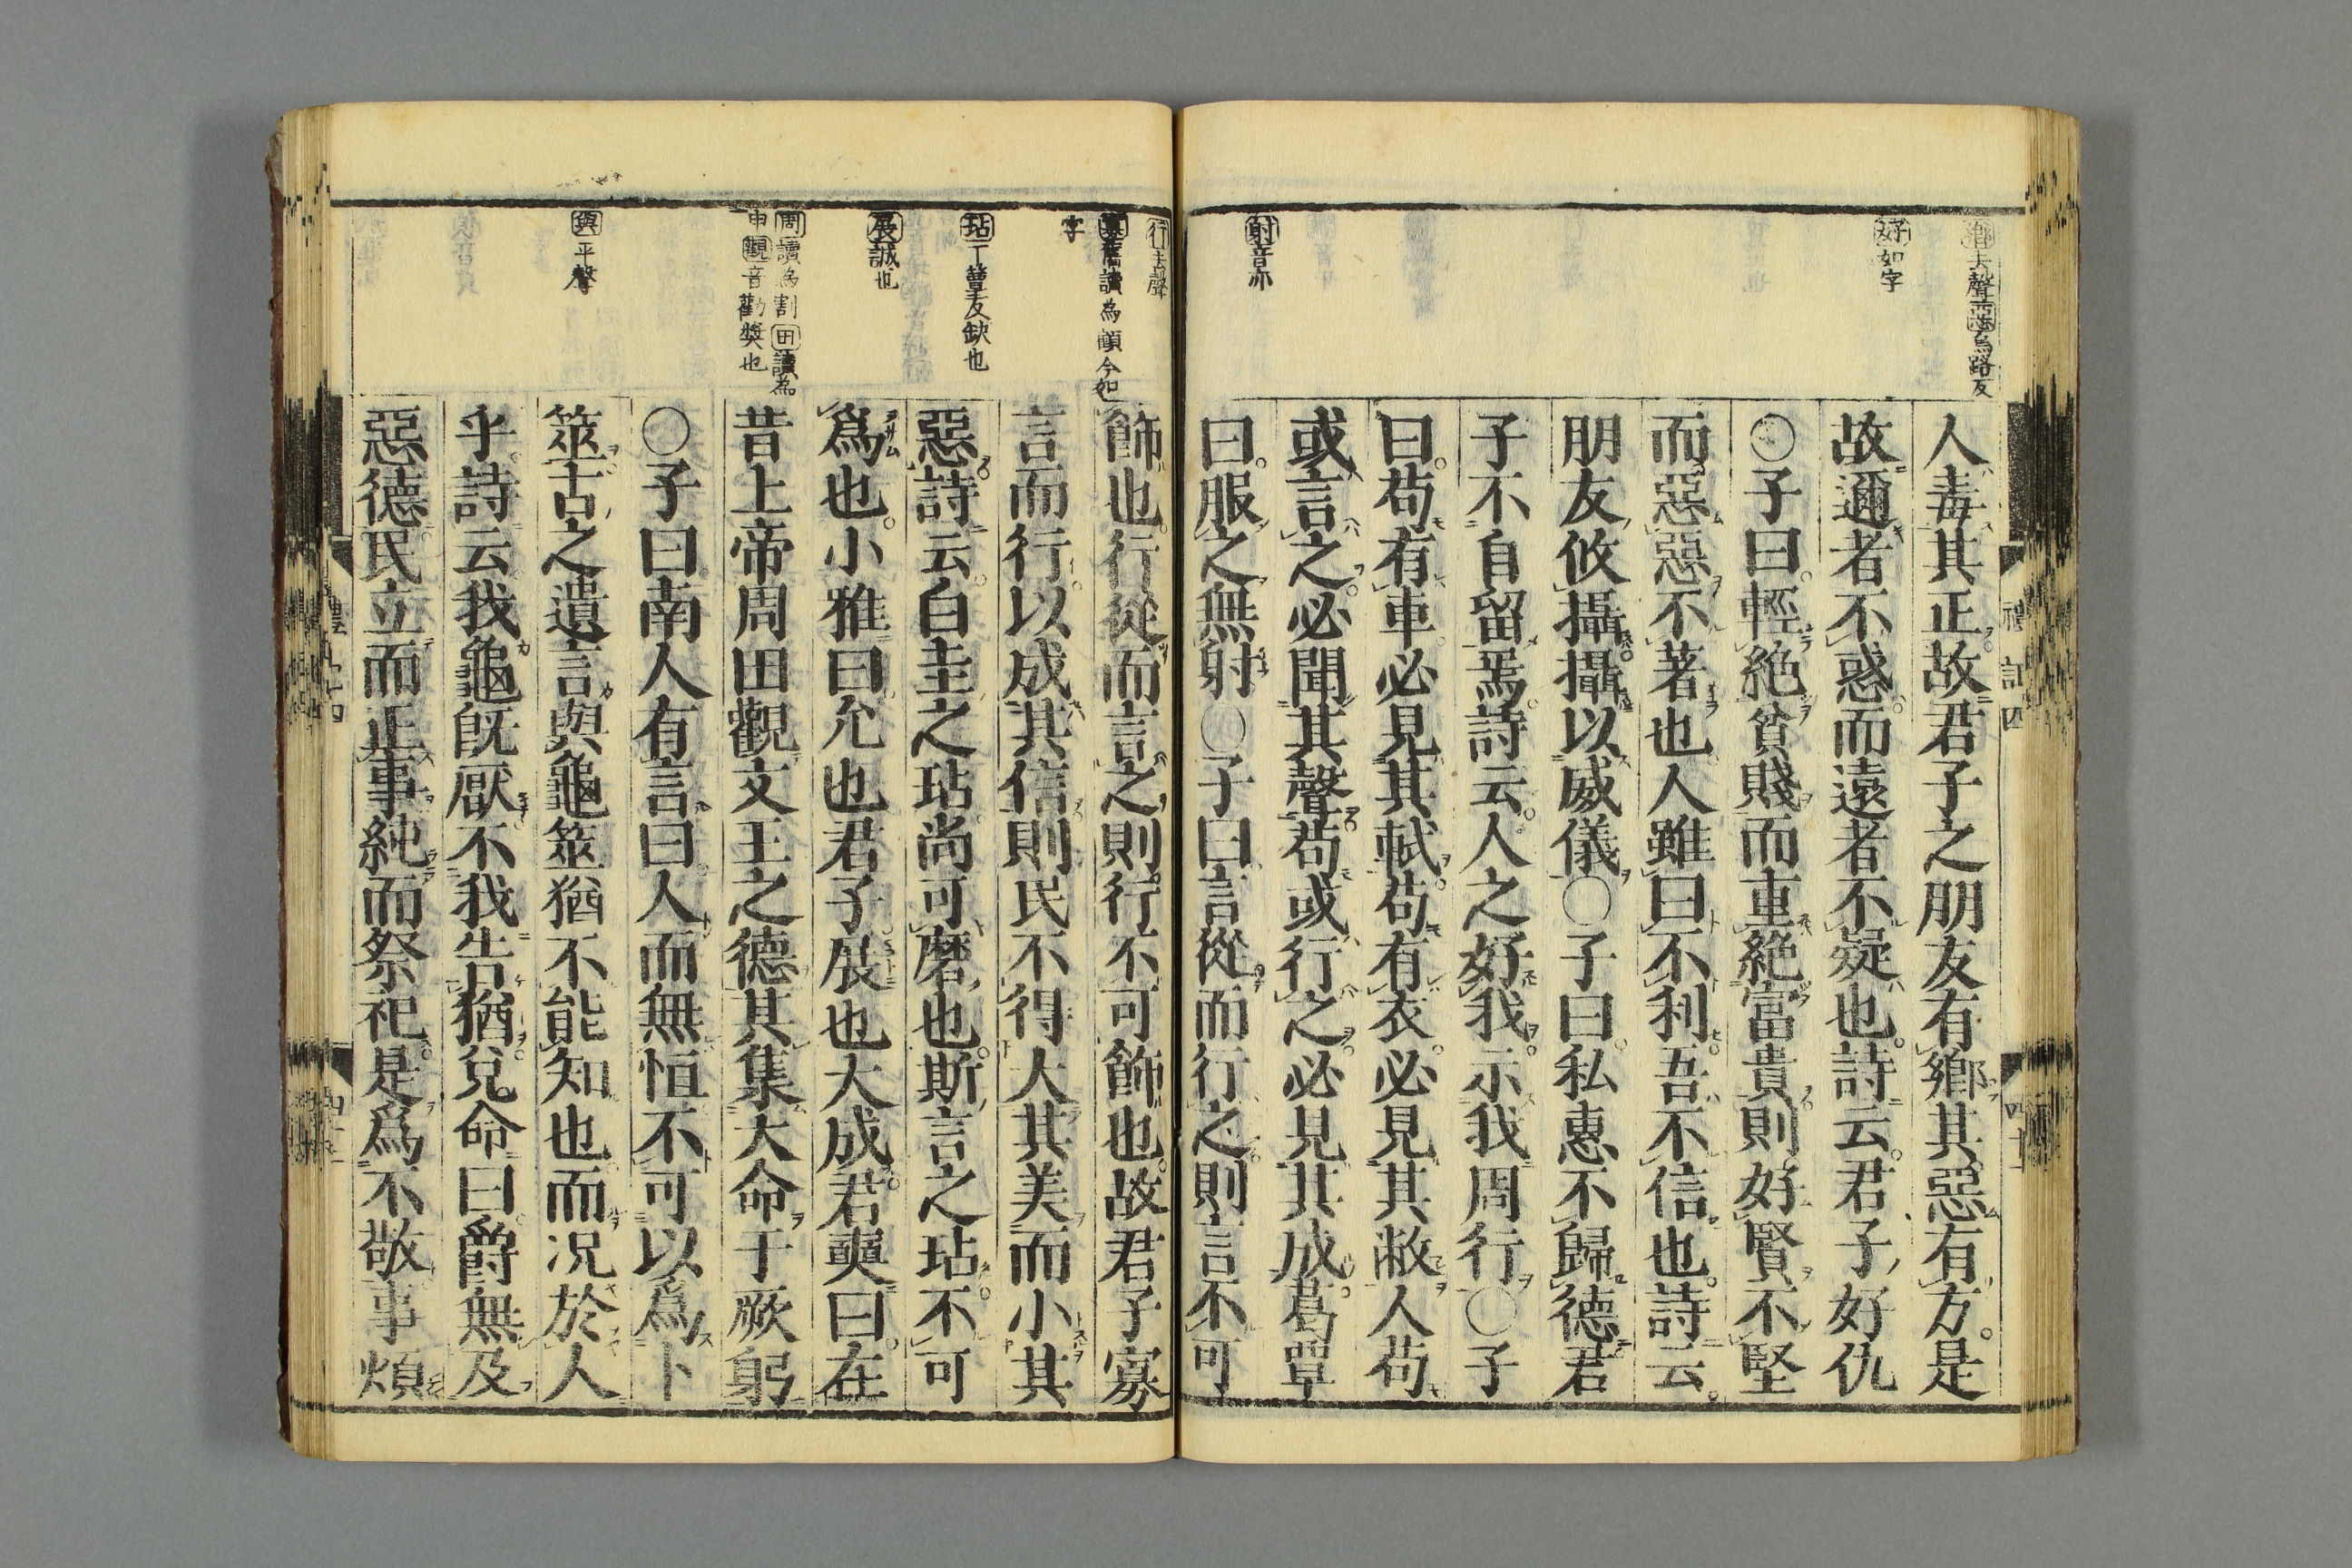 鄉去聲惡烏路反
好如字
射音亦
人毒其正故君子之朋友有鄉其惡有方是
故邇者不惑而遠者不疑也詩云君子好仇
○子曰輕絶貧賤而重絶富貴則好賢不堅
而惡惡不著也人雖曰不利吾不信也詩云
朋友攸攝攝以威儀○子曰私惠不歸德君
子不自留焉詩云人之好我示我周行○子
曰苟有車必見其軾苟有衣必見其敝人苟
或言之必聞其聲苟或行之必見其成葛覃
曰服之無射○子曰言從而行之則言不可
禮記四
行去聲
寡舊讀為顧今如
字
玷丁簟反缺也
展誠也
周讀為割田讀為
申觀音勸奬也
與平聲
飾也行從而言之則行不可飾也故君子寡
言而行以成其信則民不得大其美而小其
惡詩云白圭之玷尚可磨也斯言之玷不可
爲也小雅曰允也君子展也大成君奭曰在
昔上帝周田觀文王之德其集大命于厥躬
○子曰南人有言曰人而無恒不可以爲卜
筮古之遺言與龜筮猶不能知也而况於人
乎詩云我龜旣厭不我告猶兌命曰爵無及
惡德民立而正事純而祭祀是爲不敬事煩